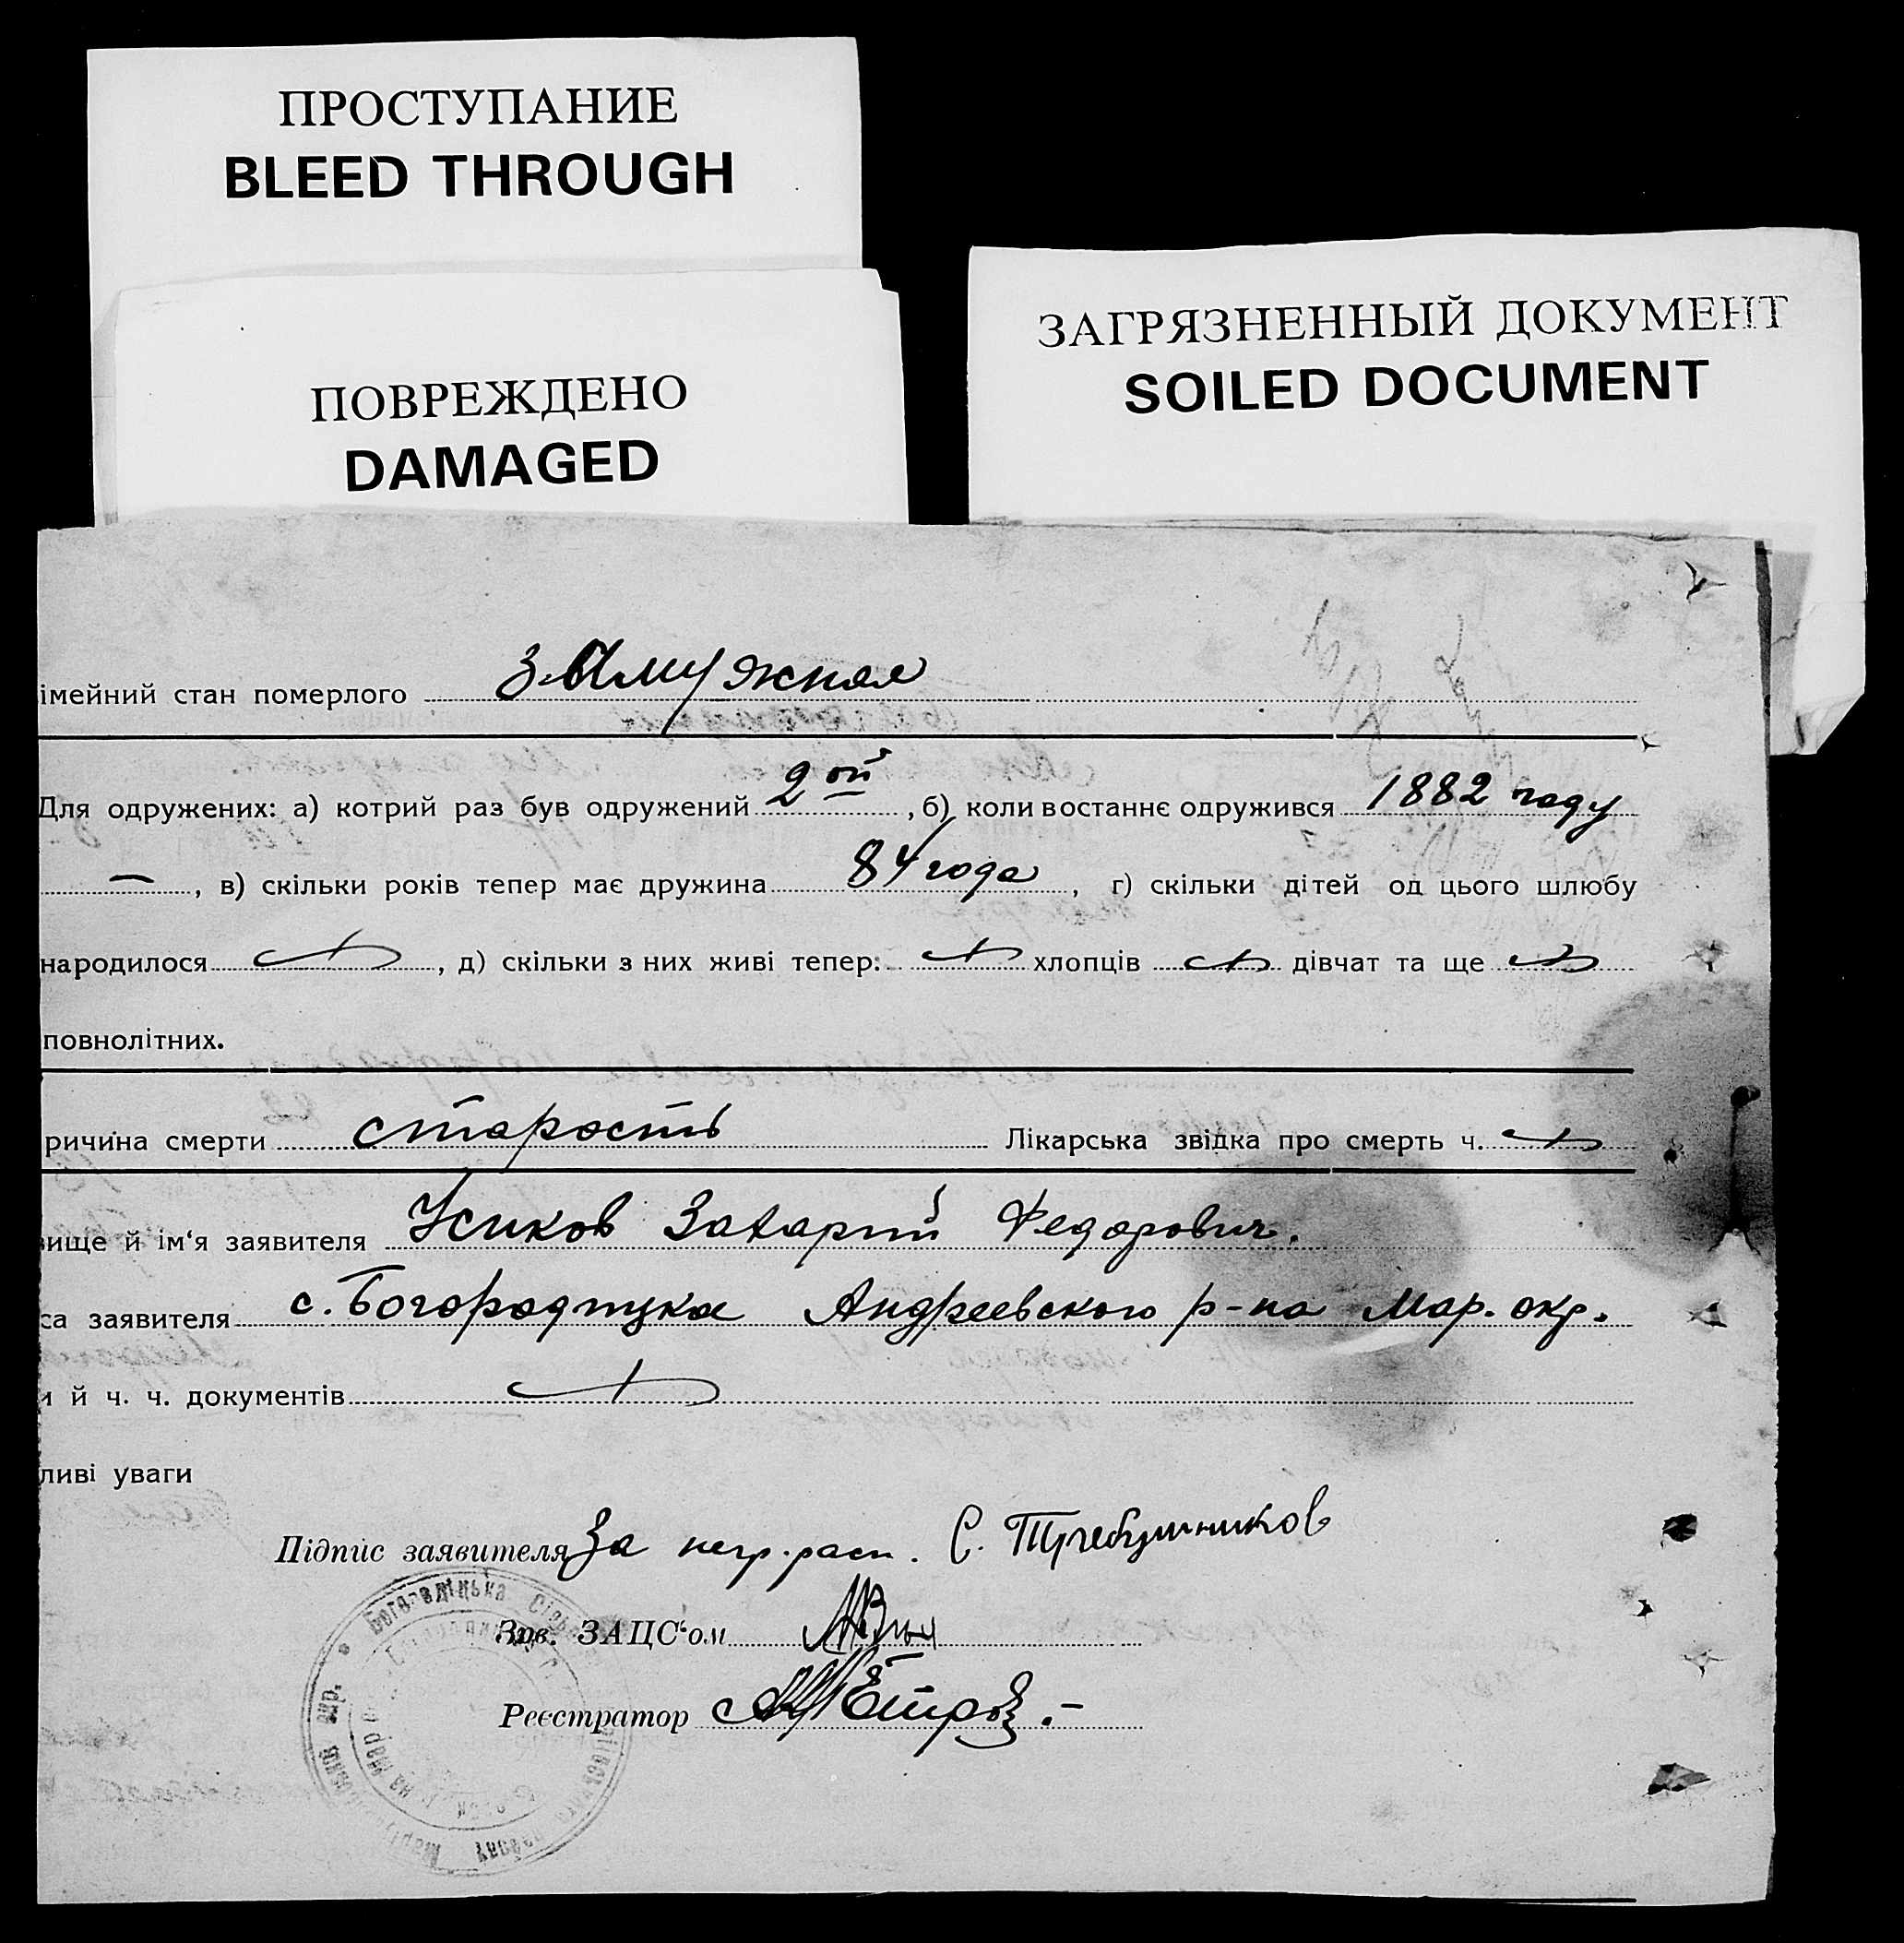 ПРОСТУПАНИЕ
BLEED THROUGH
ПОВРЕЖДЕНО
DAMAGED
ЗАГРЯЗНЕННЫЙ ДОКУМЕНТ
SOILED DOCUMENT
імейний стан померлого замужная
Для одружених: а) котрий раз був одружений 2ой, б) коли востаннє одружився 1882 году
—, в) скільки років тепер має дружина 84 года, г) скільки дітей од цього шлюбу
народилося, д) скільки з них живі тепер: хлопців дівчат та ще
повнолітних.
ричина смерти старость Лікарська звідка про смерть ч.
вище й ім'я заявителя Усиков Захарий Федорович.
са заявителя с. Богородицкое Андреевского р-на Мар. окр.
и й ч. ч. документів
ливі уваги
Підпис заявителя За негр. расп. С.
Зав. ЗАЦС'ом
Реєстратор